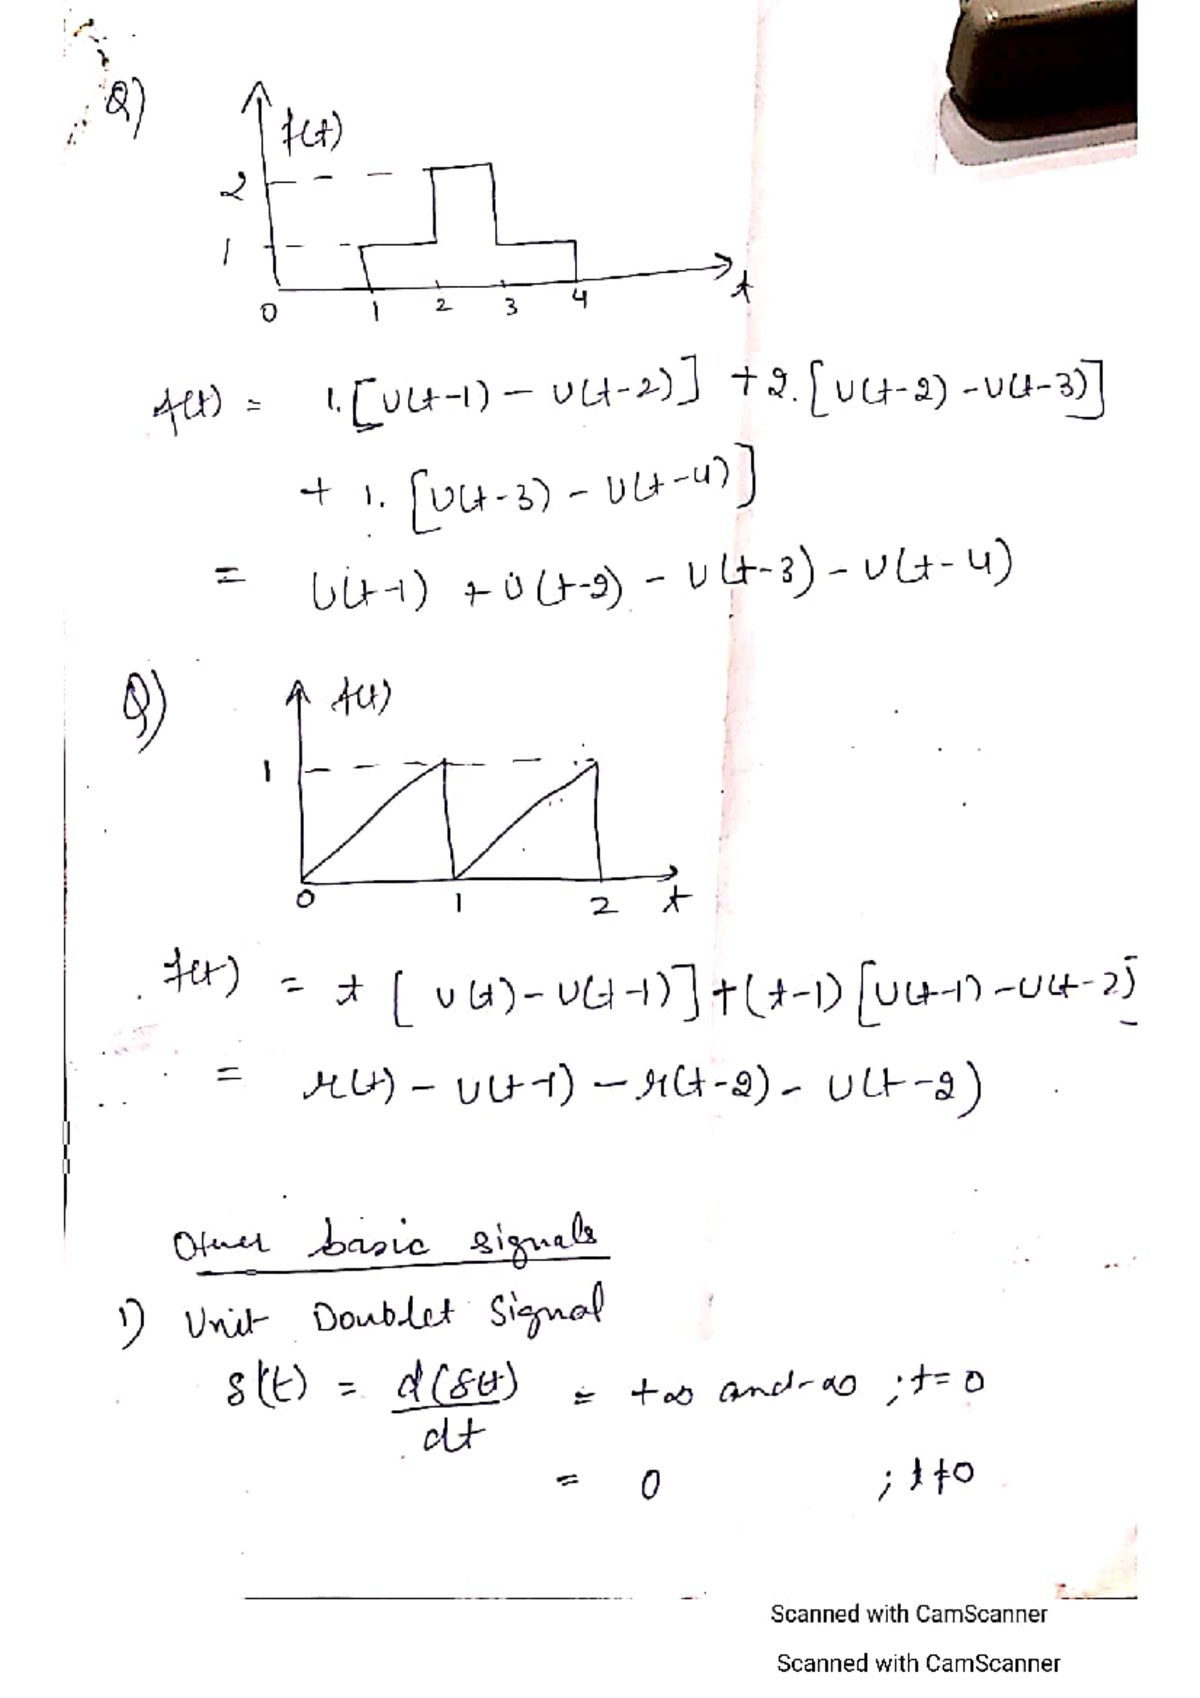 Q)
f(t)
2
1
0 1 2 3 4 t
f(t) = 1.[U(t-1) - U(t-2)] + 2.[U(t-2) - U(t-3)]
+ 1. [U(t-3) - U(t-4)]
= U(t-1) + U(t-2) - U(t-3) - U(t-4)
Q)
f(t)
1
0 1 2 t
f(t) = t [U(t) - U(t-1)] + (t-1) [U(t-1) - U(t-2)]
= r(t) - U(t-1) - r(t-2) - U(t-2)
Other basic signals
1) Unit Doublet Signal
δ'(t) = d(δ(t)) = +∞ and -∞ ; t=0
dt
= 0 ; t≠0
Scanned with CamScanner
Scanned with CamScanner